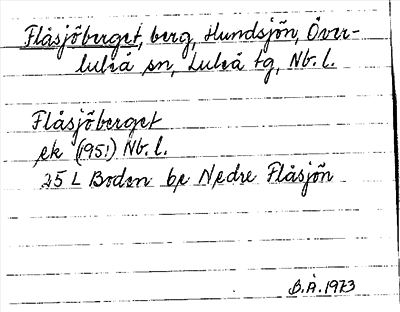 Flåsjöberget, berg, Hundsjön, Över-
luleå sn, Luleå tg, Nb. l.
Flåsjöberget
ek (1951) Nb. l.
25 L Boden be Nedre Flåsjön
B.Å. 1973